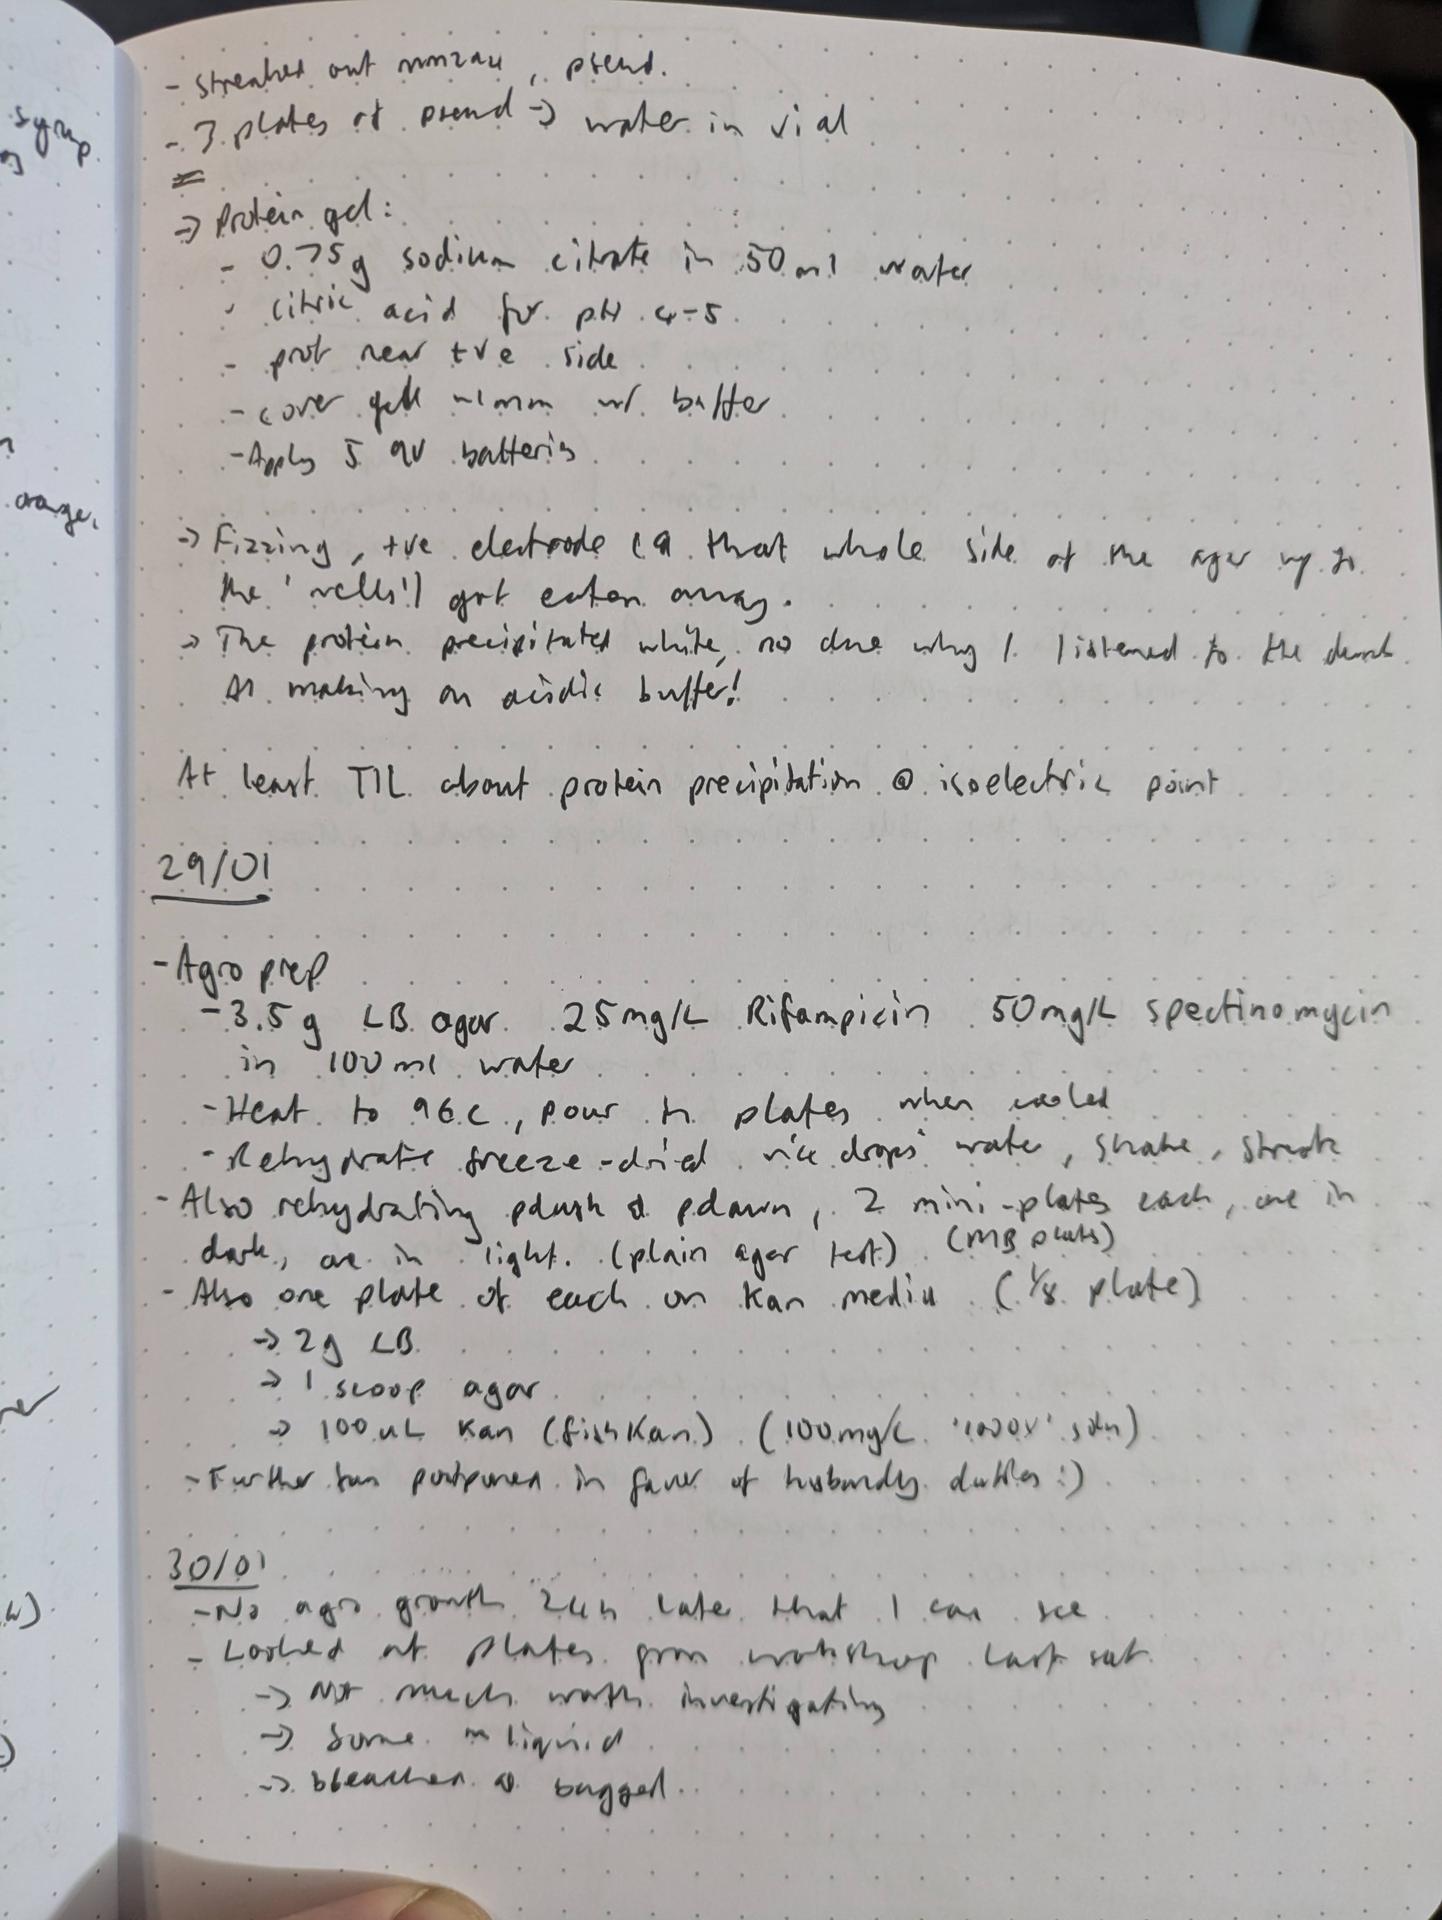 syrup
orange,
- streaked out , pseud.
- 3 plates of pseud → water in vial
→ Protein gel:
- 0.75g sodium citrate in 50ml water
- citric acid for pH 4-5
- prot near +ve side
- cover gel ~1mm w/ buffer
- Apply 5 9V batteries
→ Fizzing, +ve electrode (& that whole side of the agar up to
the 'wells') got eaten away.
→ The protein precipitated white, no clue why I listened to the dumb
AI making an acidic buffer!
At least TIL about protein precipitation @ isoelectric point
29/01
- Agro prep
- 3.5g LB agar 25mg/L Rifampicin 50mg/L spectinomycin
in 100ml water
- Heat to 96c, pour to plates when cooled
- Rehydrate freeze-dried drops water, shake, streak
- Also rehydrating pdusk & pdawn, 2 mini-plates each, one in
dark, one in light. (plain agar test) (MB plates)
- Also one plate of each on Kan media (1/8 plate)
→ 2g LB
→ 1 scoop agar
→ 100uL Kan (fishKan) (100mg/L '1000x' soln)
- Further fun postponed in favor of husbandly duties :)
30/01
- No agro growth 24h later that I can see
- Looked at plates from workshop last sat
→ Not much worth investigating
→ Some liquid
→ bleached & bagged